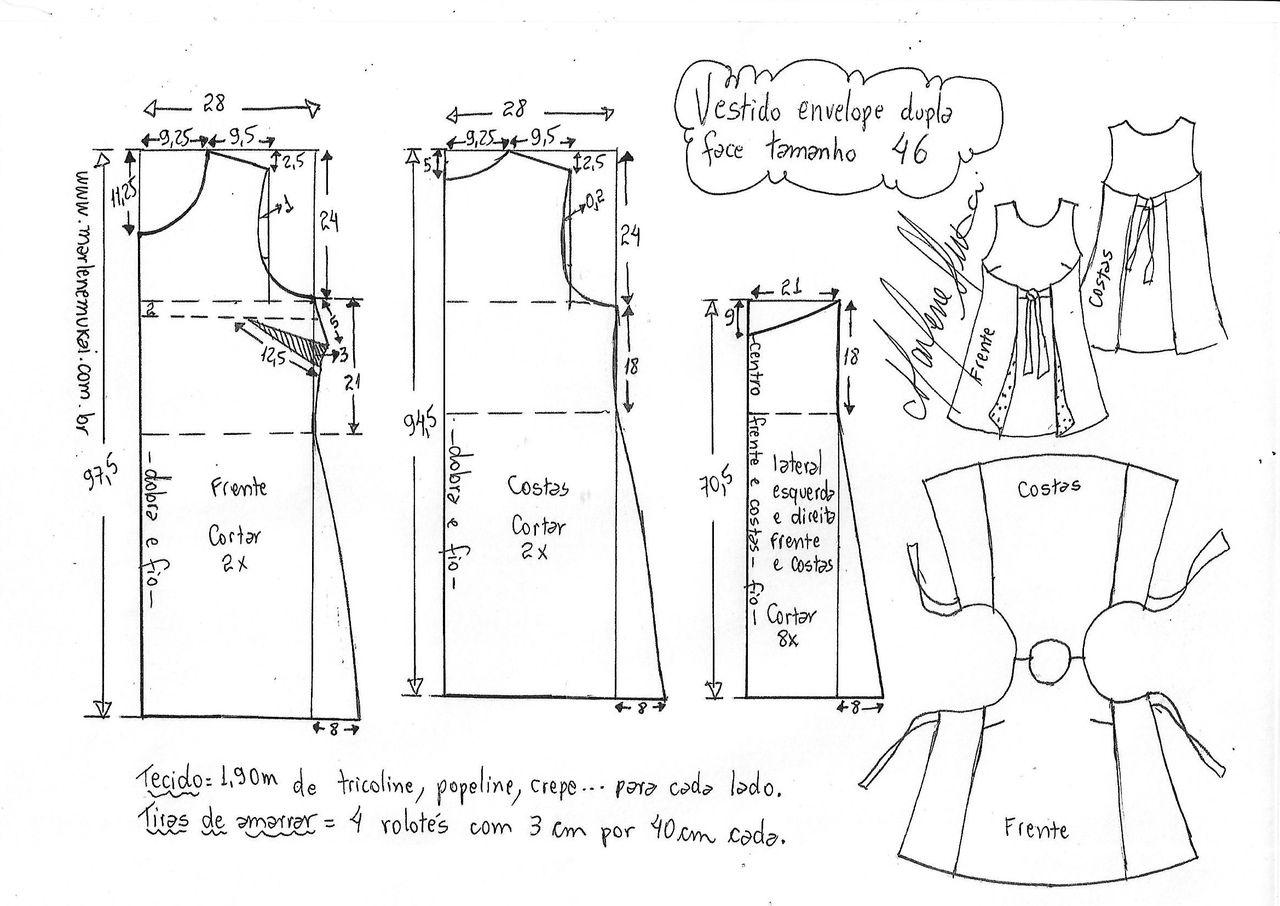 Vestido envelope dupla
face tamanho 46
www.marlenemukai.com.br
28
9,25
9,5
2,5
11,25
1
24
2
5
12,5
3
21
97,5
-dobra e fio-
Frente
Cortar
2x
8
28
9,25
9,5
5
2,5
0,2
24
18
94,5
-dobra e fio-
Costas
Cortar
2x
8
21
9
18
70,5
centro frente e costas - fio -
lateral
esquerda
e direita
frente
e costas
Cortar
8x
8
Marlene Mukai
Frente
Costas
Costas
Frente
Tecido = 1,90m de tricoline, popeline, crepe... para cada lado.
Tiras de amarrar = 4 rolotés com 3 cm por 40 cm cada.